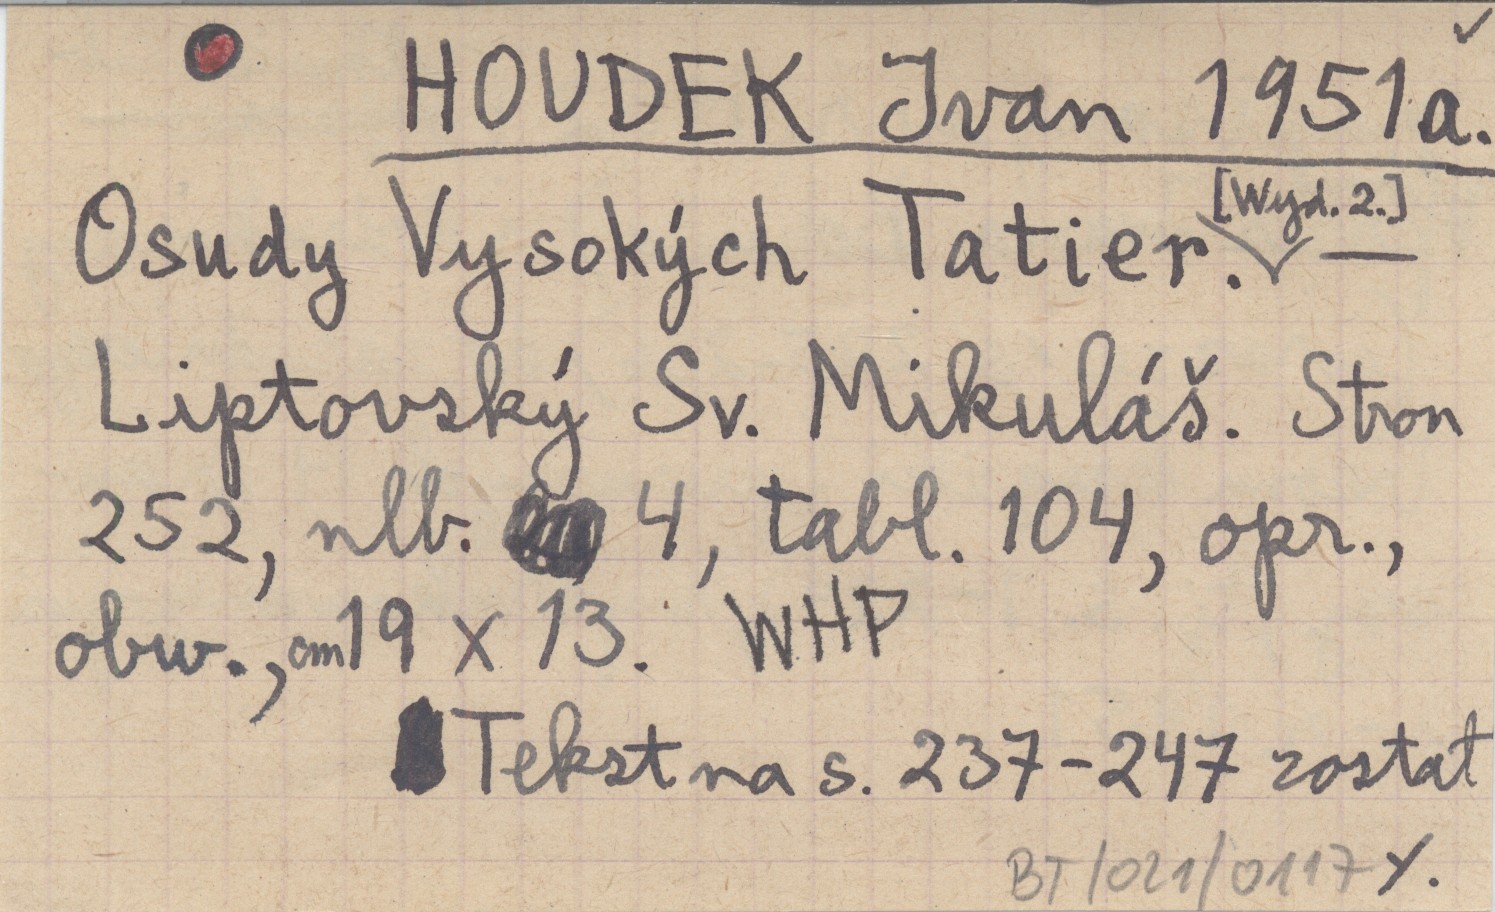 HOUDEK Ivan 1951a.
Osudy Vysokých Tatier. [Wyd. 2.] —
Liptovský Sv. Mikuláš. Stron
252, nlb. 4, tabl. 104, opr.,
obw., cm 19 x 13. WHP
Tekst na s. 237-247 został
BT/021/0117 Y.